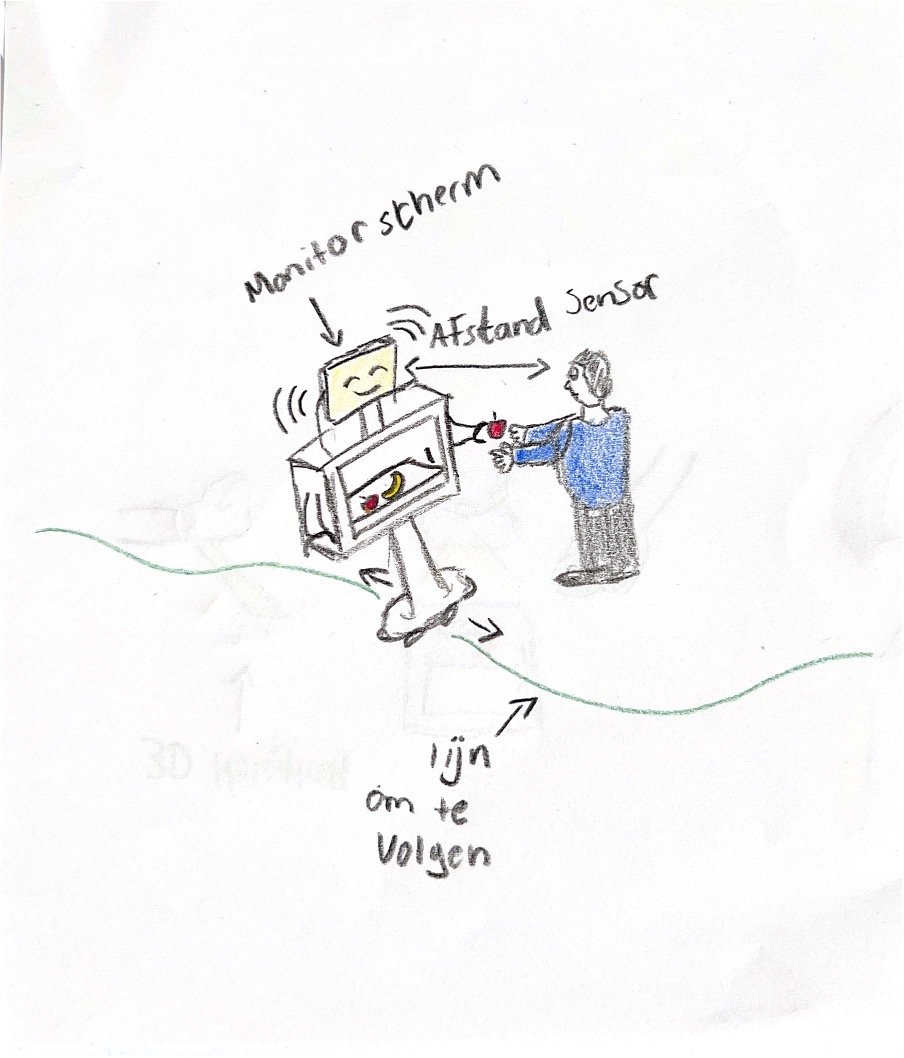 Monitor scherm
Afstand Sensor
lijn
om te
Volgen